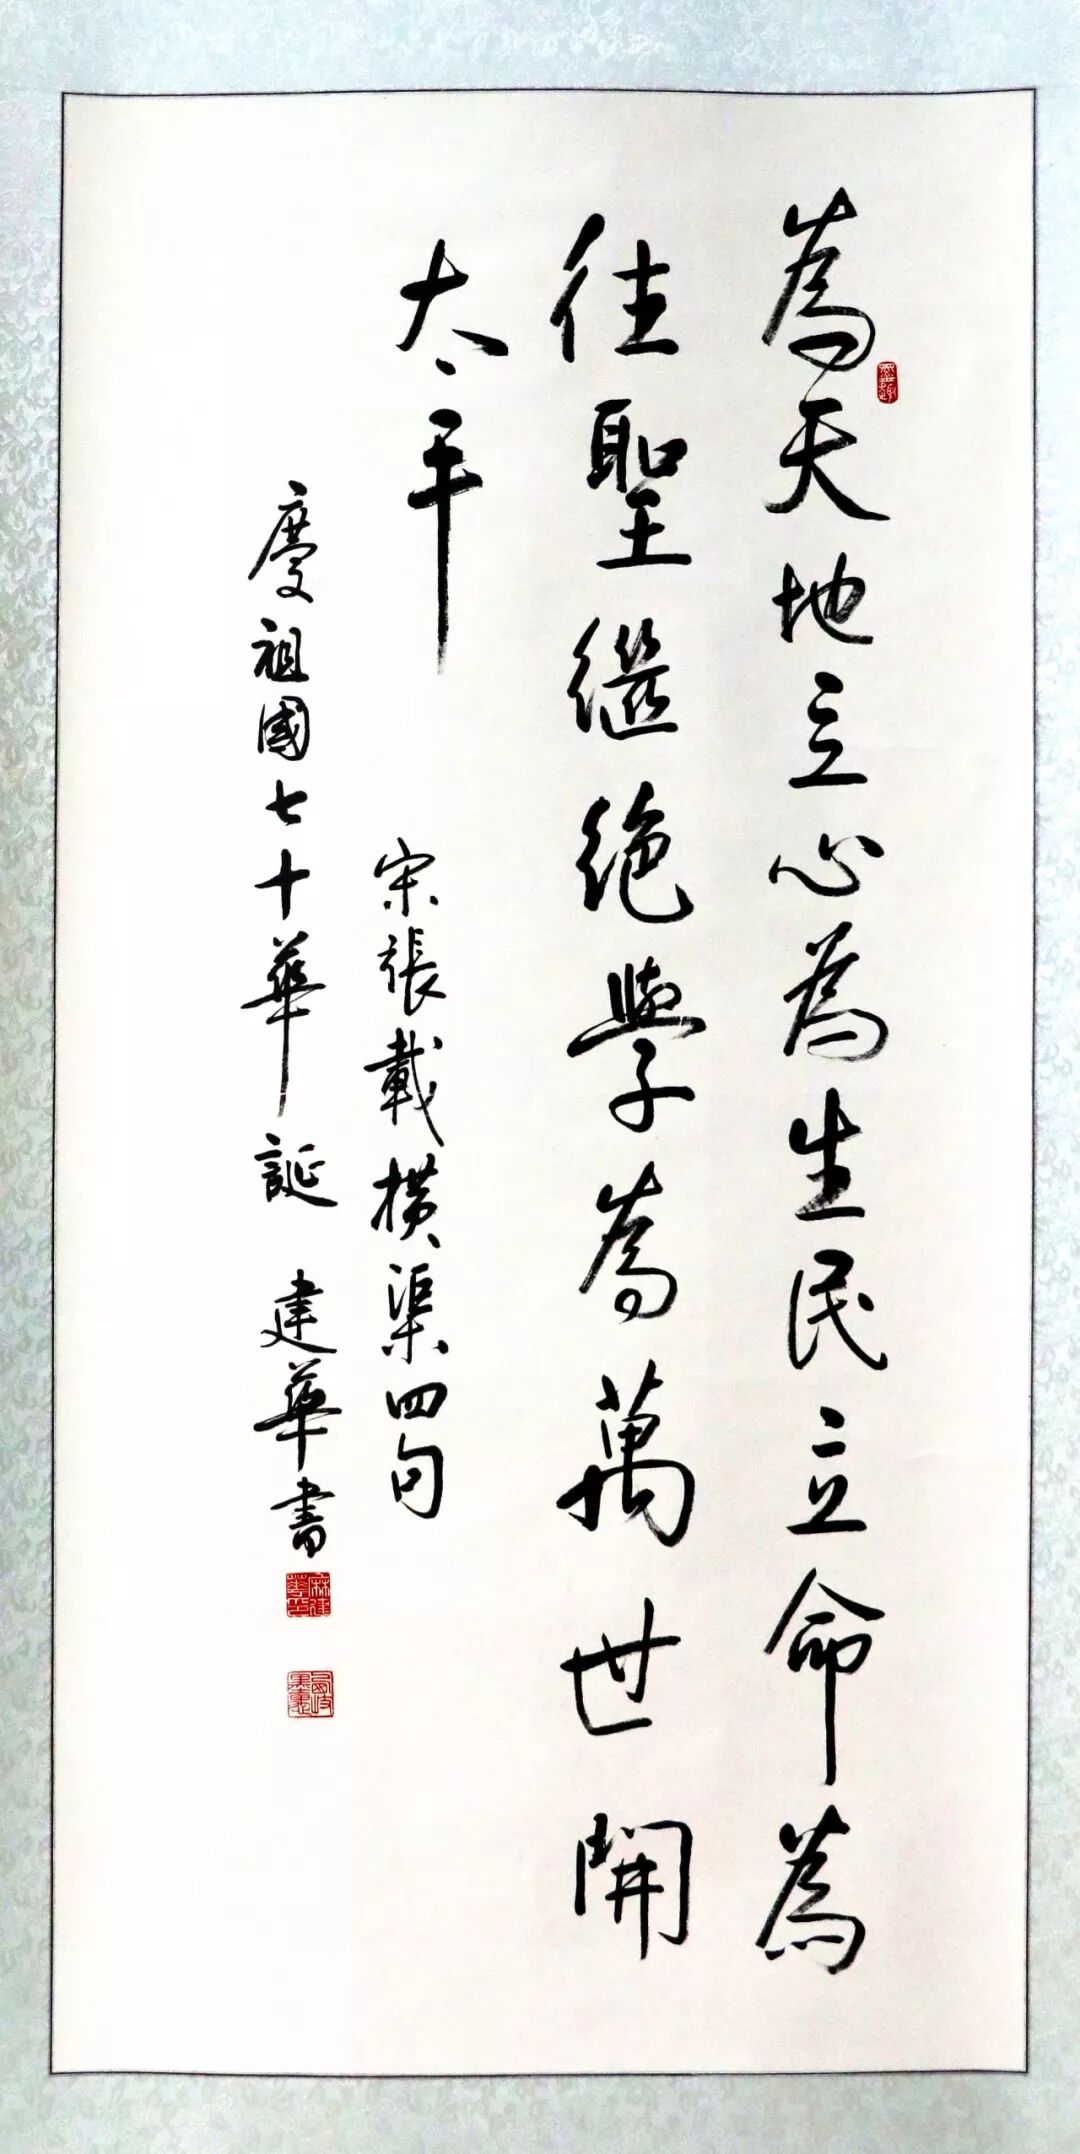 為天地立心為生民立命為
往聖繼絕學為萬世開
太平
宋張載橫渠四句
慶祖國七十華誕 建華書